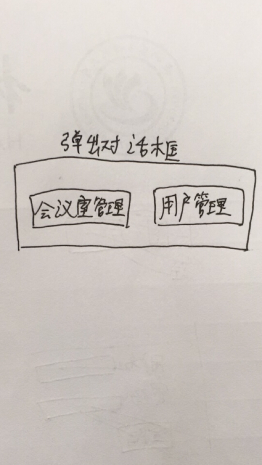 弹出对话框
会议室管理
用户管理